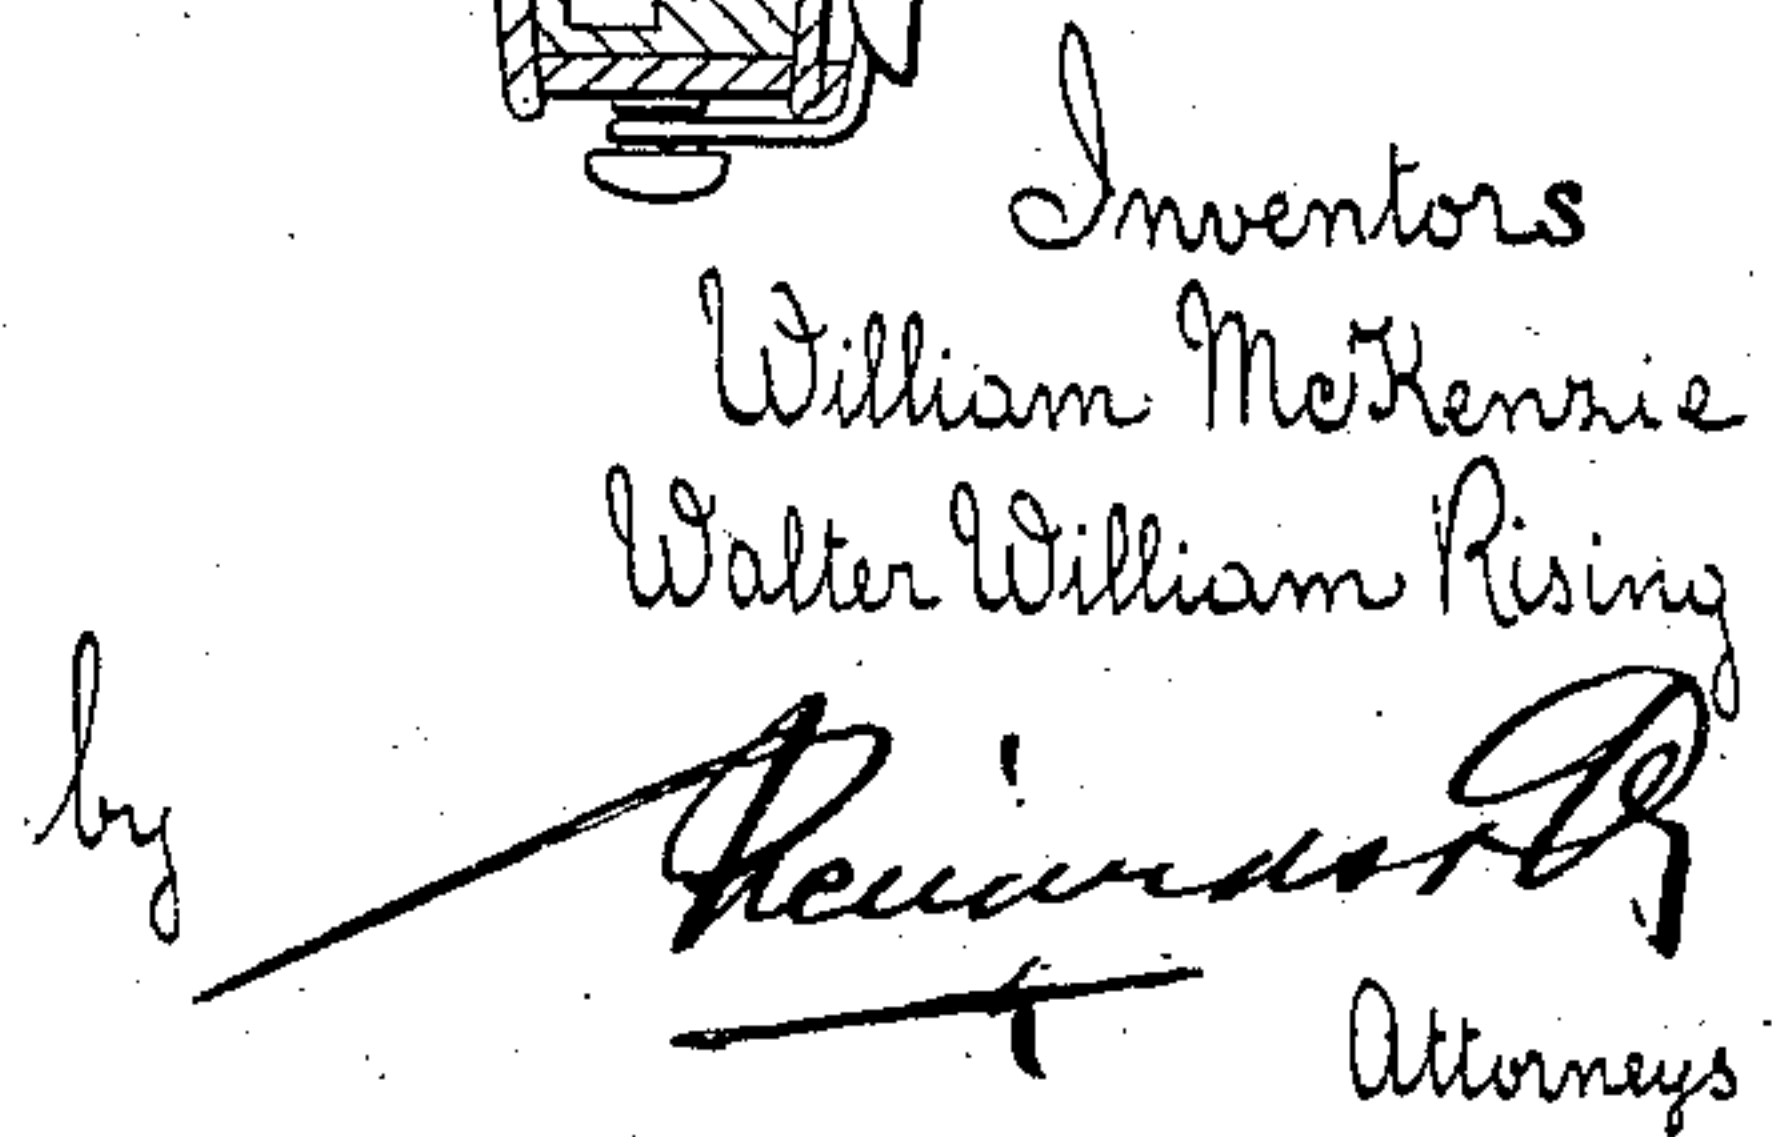 Inventors
William McKenzie
Walter William Rising
by
Attorneys